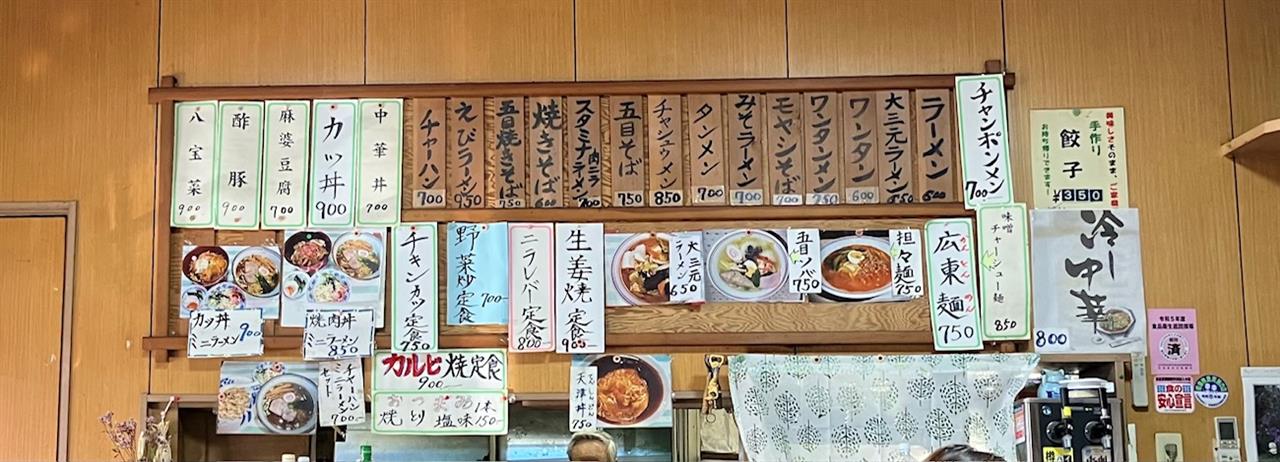 チャンポンメン
700
ラーメン
600
大三元ラーメン
850
ワンタン
600
ワンタンメン
750
モヤシそば
700
みそラーメン
700
タンメン
700
チャシュウメン
850
五目そば
750
肉ニラ
スタミナラーメン
700
焼きそば
700
五目焼きそば
750
えびラーメン
950
チャーハン
700
中華丼
700
カツ丼
900
麻婆豆腐
700
酢豚
900
八宝菜
900
美味しさそのまま、ご家庭
手作り
餃子
お持ち帰りできます!
¥350
冷し中華
800
味噌
チャーシュー麺
850
広東麺
かんとんめん
750
担々麺
750
五目ソバ
750
大三元
ラーメン
650
生姜焼定食
900
ニラレバー定食
800
野菜炒定食
700
チキンカツ定食
750
焼肉丼
ミニラーメン
850
カツ丼
ミニラーメン
900
チャーハン
ミニラーメン
セット
700
カルビ焼定食
900
おつまみ
焼とり 塩味 1本
150
天津丼
750
令和5年度
食品衛生巡回指導
済
食の
安心宣言